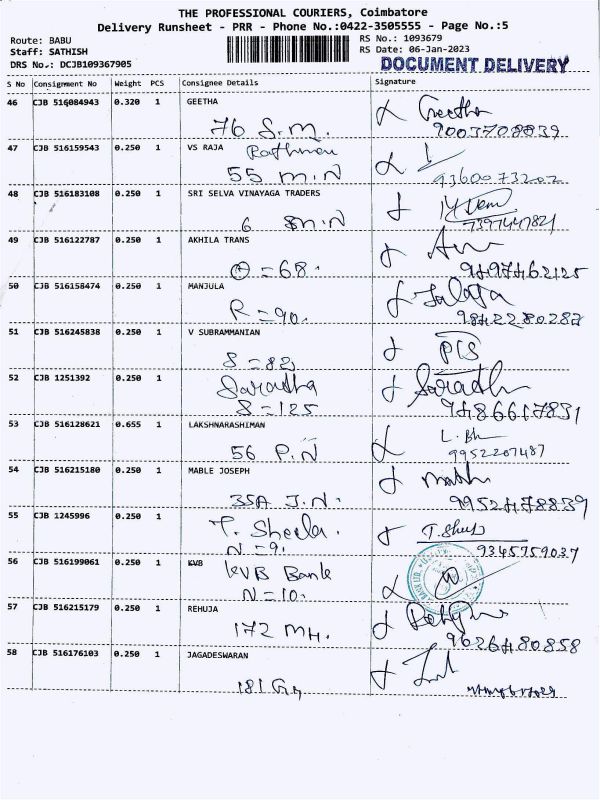 THE PROFESSIONAL COURIERS, Coimbatore
Delivery Runsheet - PRR - Phone No.:0422-3505555 - Page No.:5
Route: BABU
RS No.: 1093679
Staff: SATHISH
RS Date: 06-Jan-2023
DRS No.: DCJB109367905
DOCUMENT DELIVERY
S No Consignment No Weight PCS Consignee Details Signature
46 CJB 516084943 0.320 1 GEETHA
Geetha
76 S.M.
9003708839
47 CJB 516159543 0.250 1 VS RAJA
55 M.N
9360073202
48 CJB 516183108 0.250 1 SRI SELVA VINAYAGA TRADERS
6 M.N
7397447821
49 CJB 516122787 0.250 1 AKHILA TRANS
= 68.
9497462125
50 CJB 516158474 0.250 1 MANJULA
R = 90.
9842280287
51 CJB 516245838 0.250 1 V SUBRAMMANIAN
S = 82
52 CJB 1251392 0.250 1
Saradha
Saradh
S = 125
9486617831
53 CJB 516128621 0.655 1 LAKSHNARASHIMAN
L. Bh
56 P.N
9952207487
54 CJB 516215180 0.250 1 MABLE JOSEPH
35A J.N.
9952478839
55 CJB 1245996 0.250 1
T. Sheela.
N = 9.
9345759037
56 CJB 516199061 0.250 1 KVB
KVB Bank
N = 10.
57 CJB 516215179 0.250 1 REHUJA
172 MH.
9626480858
58 CJB 516176103 0.250 1 JAGADESWARAN
181 G